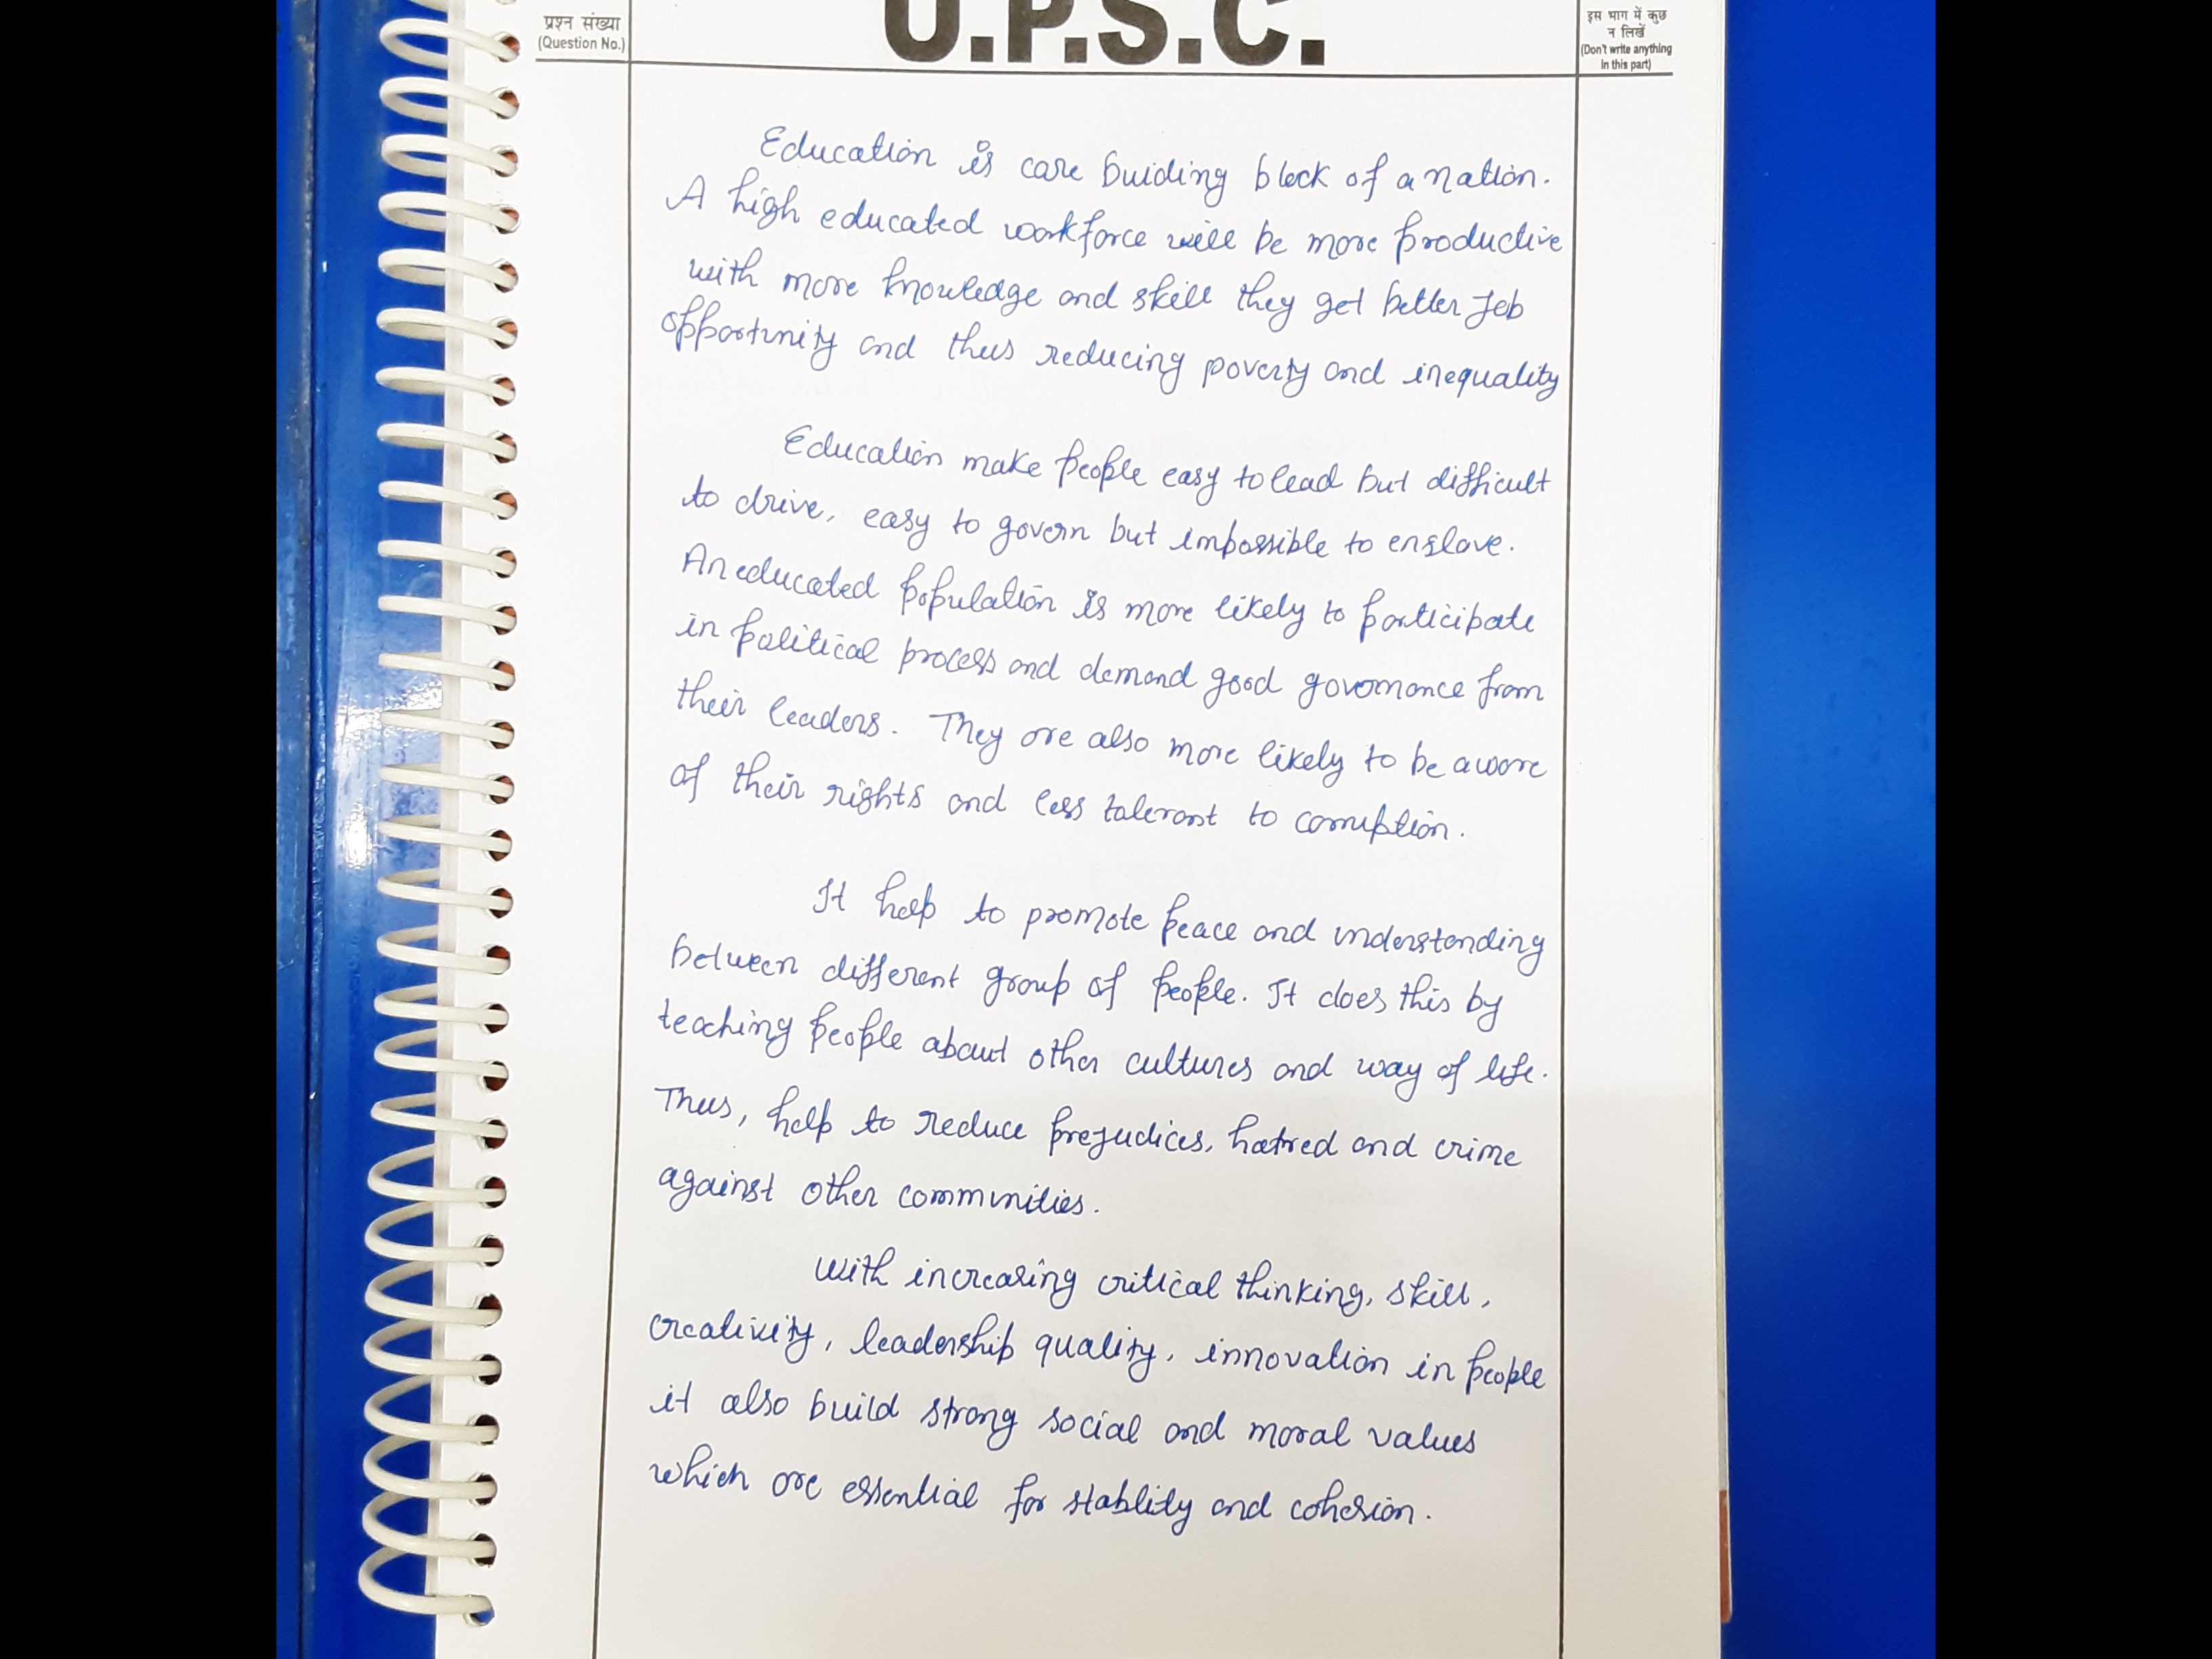 प्रश्न संख्या
(Question No.)
U.P.S.C.
इस भाग में कुछ
न लिखें
(Don't write anything
in this part)
Education is core buiding block of a nation.
A high educated workforce will be more productive
with more knowledge and skill they get better Job
opportunity and thus reducing poverty and inequality
Education make people easy to lead but difficult
to drive, easy to govern but impossible to enslave.
An educated population is more likely to participate
in political process and demand good governance from
their leaders. They are also more likely to be aware
of their rights and less tolerant to corruption.
It help to promote peace and understanding
between different group of people. It does this by
teaching people about other cultures and way of life.
Thus, help to reduce prejudices, hatred and crime
against other communities.
With increasing critical thinking, skill,
creativity, leadership quality, innovation in people
it also build strong social and moral values
which are essential for stablity and cohesion.